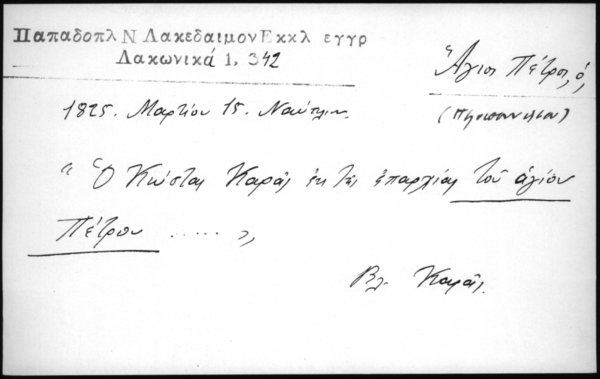 Παπαδοπλ Ν Λακεδαιμον Εκκλ εγγρ
Λακωνικά 1, 342
Ἅγιος Πέτρος, ὁ,
1825. Μαρτίου 15. Ναύπλιον.
" Ὁ Κώστας Καρᾶς ἐκ τῆς ἐπαρχίας τοῦ ἁγίου
Πέτρου ...... "
Βλ. Καρᾶς.